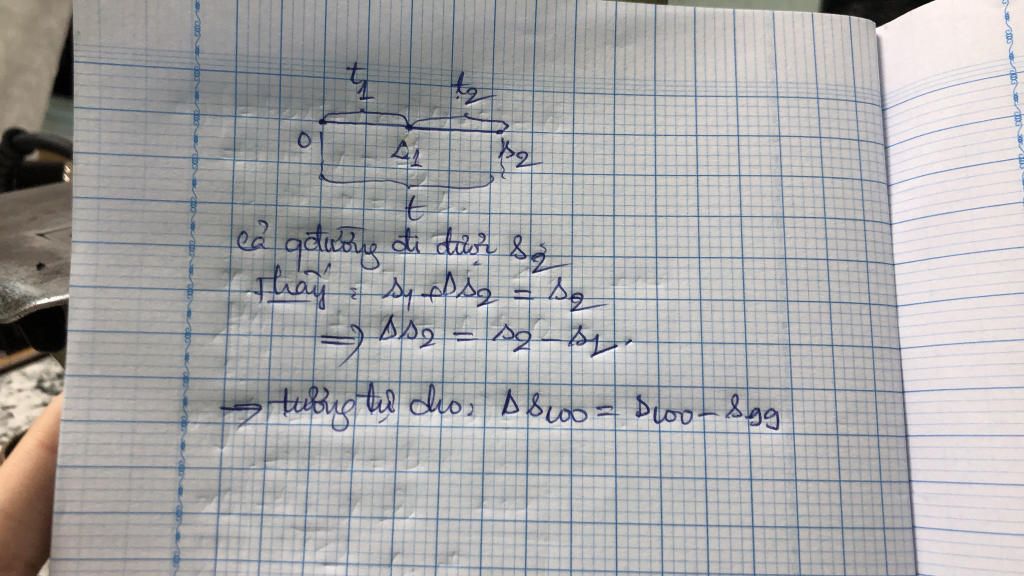 t1 t2
0 s1 s2
t
cả qđường đi được s2
Thấy: s1 + Δs2 = s2
=> Δs2 = s2 - s1.
→ tương tự cho: Δs100 = s100 - s99